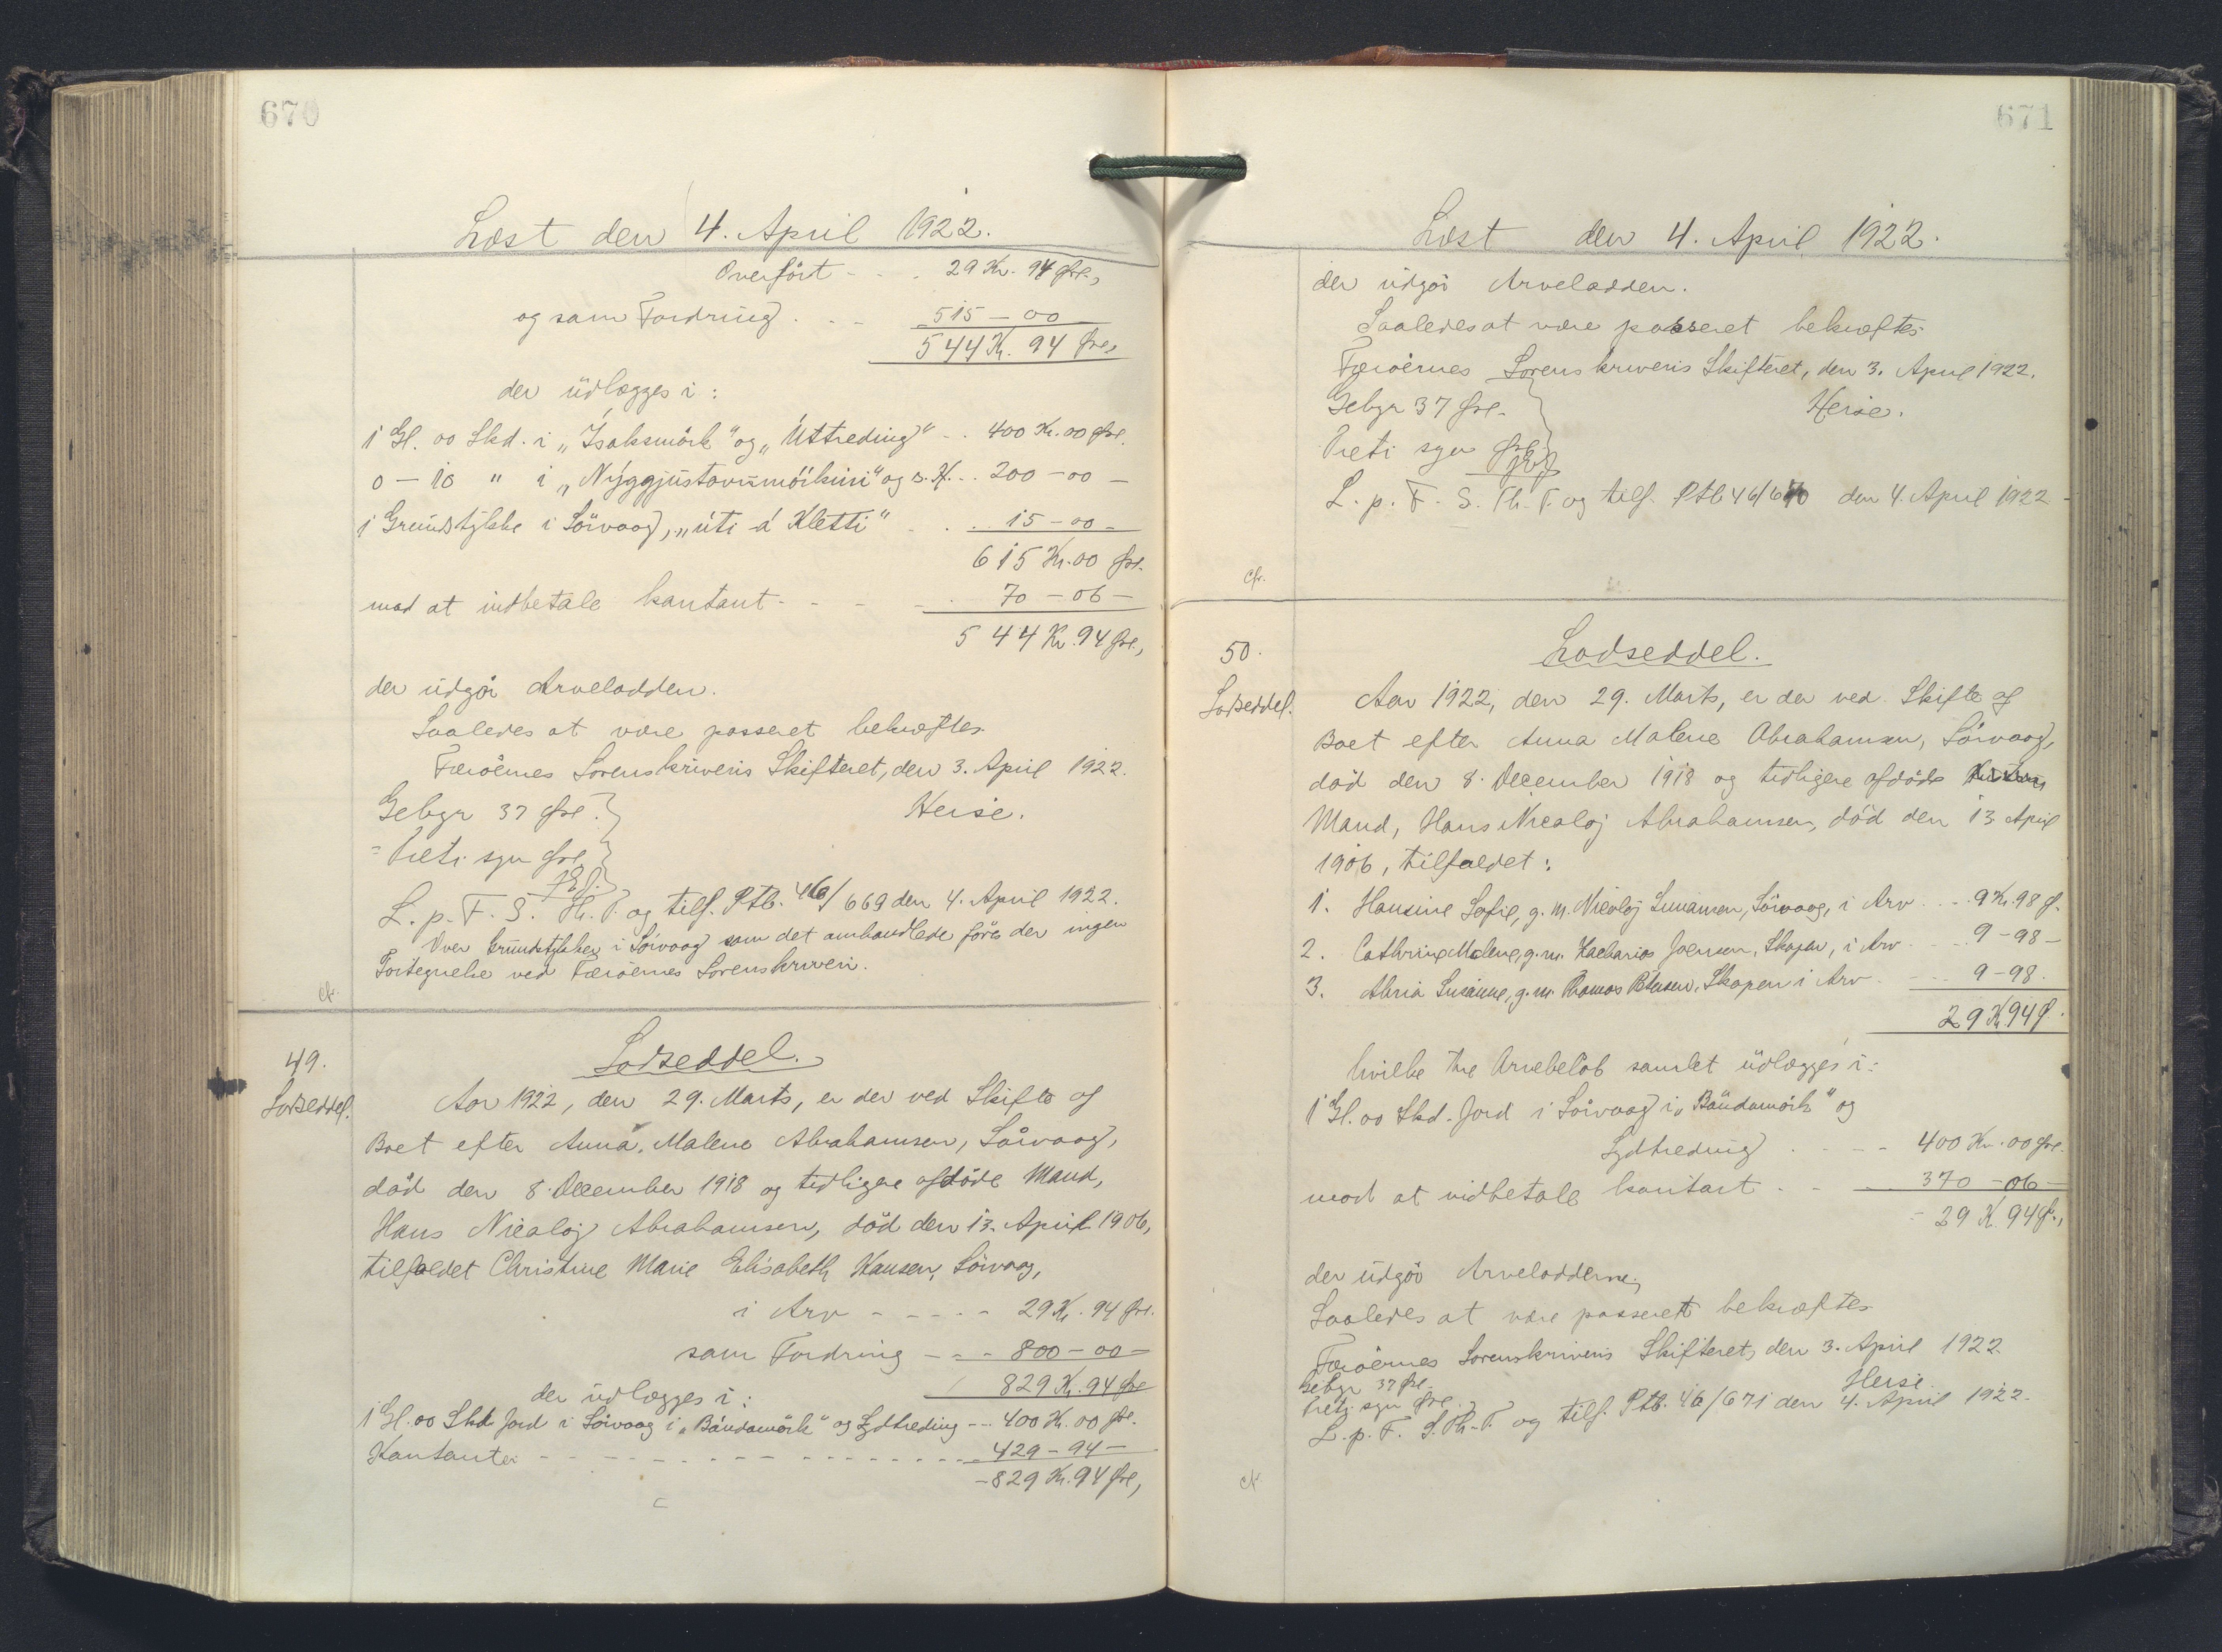 670
Læst den 4. April 1922.
Overført - - - 29 Kr. 94 Øre,
og som Fordring . . - 515 - 00
544 Kr. 94 Øre,
der udlægges i:
1 Gl. 00 Skd. i „Isaksmörk" og „Úttreding" - . 400 Kr. 00 Øre.
0 - 10 " i „Nýggjústovumörkini" og s. H. . . 200 - 00 -
1 Grundstykke i Sörvaag, „úti á Kletti" - . . 15 - 00 -
615 Kr. 00 Øre.
mod at indbetale kontant - - - - . 70 - 06 -
544 Kr. 94 Øre,
der udgør Arvelodden.
Saaledes at være passeret bekræftes
Færöernes Sorenskriveris Skifteret, den 3. April 1922.
Gebyr 37 Øre.
Heise.
Treti syv Øre
L. p. F. S. Th. P. og tilf. Ptb. 46/669 den 4. April 1922.
Over Grundstykker i Sörvaag som det omhandlede føres der ingen
Fortegnelse ved Færöernes Sorenskriveri.
cfr.
49.
Lodseddel.
Lodseddel.
Aar 1922, den 29. Marts, er der ved Skifte af
Boet efter Anna Malene Abrahamsen, Sörvaag,
död den 8. December 1918 og tidligere afdöde Mand,
Hans Nicaloj Abrahamsen, död den 13. April 1906,
tilfaldet Christine Marie Elisabeth Hansen, Sörvaag,
i Arv - - - - - 29 Kr. 94 Øre.
som Fordring - - - 800 - 00 -
829 Kr. 94 Øre
der udlægges i:
1 Gl. 00 Skd. Jord i Sörvaag i „Bándamörk" og Sydtreding - - 400 Kr. 00 Øre.
Kontanter - - - - - - - - - 429 - 94 -
- 829 Kr. 94 Øre,
671
Læst den 4. April 1922.
der udgör Arvelodden.
Saaledes at være passeret bekræftes
Færöernes Sorenskriveris Skifteret, den 3. April 1922.
Gebyr 37 Øre.
Heise.
Treti syv Øre
L. p. F. S. Th. P. og tilf. Ptb 46/670 den 4. April 1922 -
cfr.
50.
Lodseddel.
Lodseddel.
Aar 1922, den 29. Marts, er der ved Skifte af
Boet efter Anna Malene Abrahamsen, Sörvaag,
död den 8. December 1918 og tidligere afdöde
Mand, Hans Nicaloj Abrahamsen, död den 13. April
1906, tilfaldet:
1. Hansine Sofie, g. m. Nicoloj Simonsen, Sörvaag, i Arv . . - 9 Kr. 98 Ø.
2. Cathrine Malene, g. m. Zacharias Joensen, Skopen, i Arv - - 9 - 98 -
3. Maria Susanne, g. m. Thomas Petersen, Skopen i Arv - - - 9 - 98.
29 Kr. 94 Ø.
hvilke tre Arvebelöb samlet udlægges i:
1 Gl. 00 Skd. Jord i Sörvaag i „Bándamörk" og
Sydtreding . - - - 400 Kr. 00 Øre.
mod at indbetale kontant - - 370 - 06 -
- 29 K. 94 Ø.,
der udgör Arvelodderne,
Saaledes at være passeret bekræftes
Færöernes Sorenskriveris Skifteret, den 3. April 1922
Gebyr 37 Øre.
Heise
Treti syv Øre.
L. p. F. S. Th. P. og tilf. Ptb. 46/671 den 4. April 1922.
cfr.